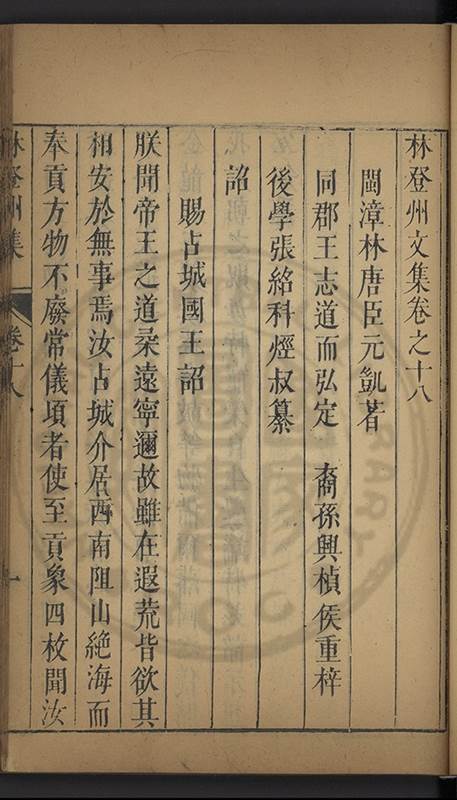 林登州文集卷之十八
閩漳林唐臣元凱著
同郡王志道而弘定　裔孫興楨侯重梓
後學張紹科烴叔纂
詔
賜占城國王詔
朕聞帝王之道柔遠寧邇故雖在遐荒皆欲其
相安於無事焉汝占城介居西南阻山絶海而
奉貢方物不廢常儀項者使至貢象四枚聞汝
林登州集　卷十八　一